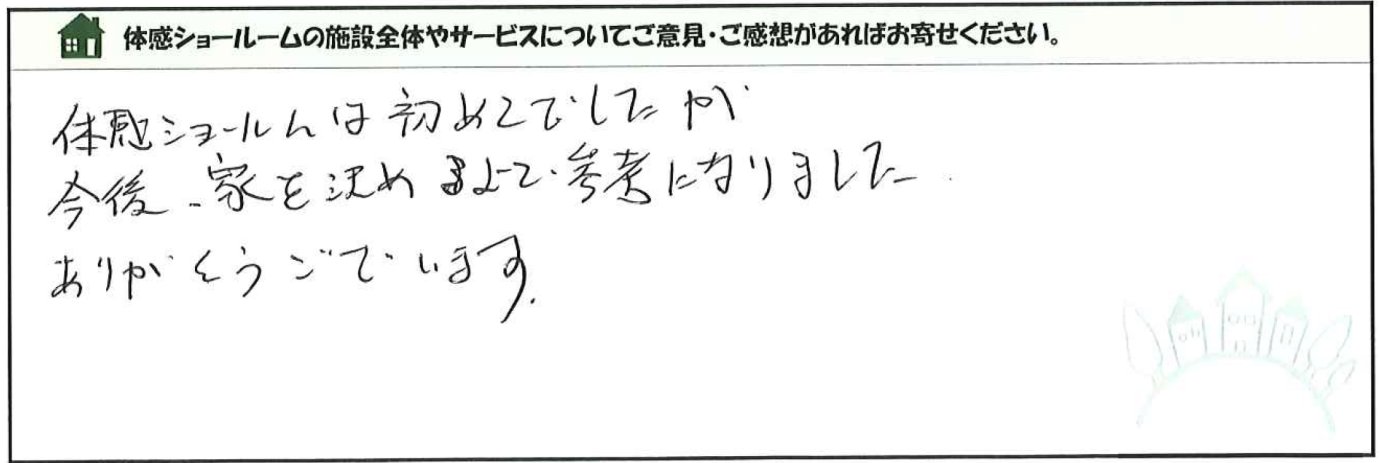 体感ショールームの施設全体やサービスについてご意見・ご感想があればお寄せください。
体感ショールムは初めてでしたが
今後、家を決める上で参考になりました
ありがとうございます.